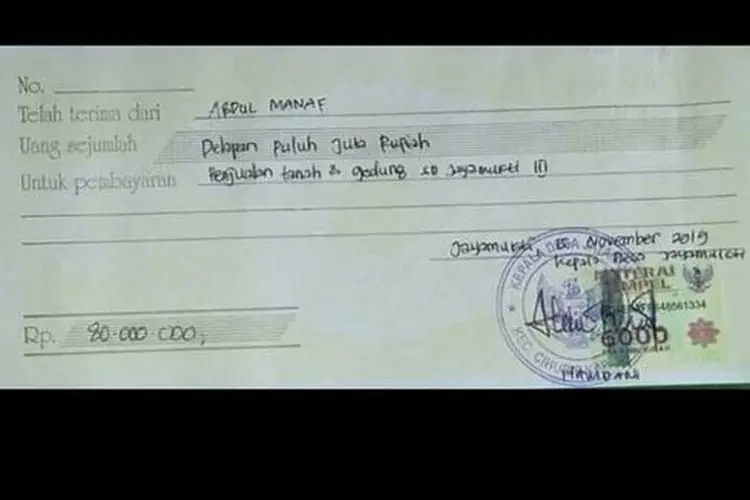 No.
Telah terima dari ABDUL MANAF
Uang sejumlah Delapan puluh Juta Rupiah
Untuk pembayaran Penjualan tanah & gedung SD Jayamukti III
Jayamukti, November 2019
Kepala Desa Jayamukti
KEPALA DESA
METERAI TEMPEL
6000
KEC. CIHU
HAMDANI
Rp. 80.000.000,-